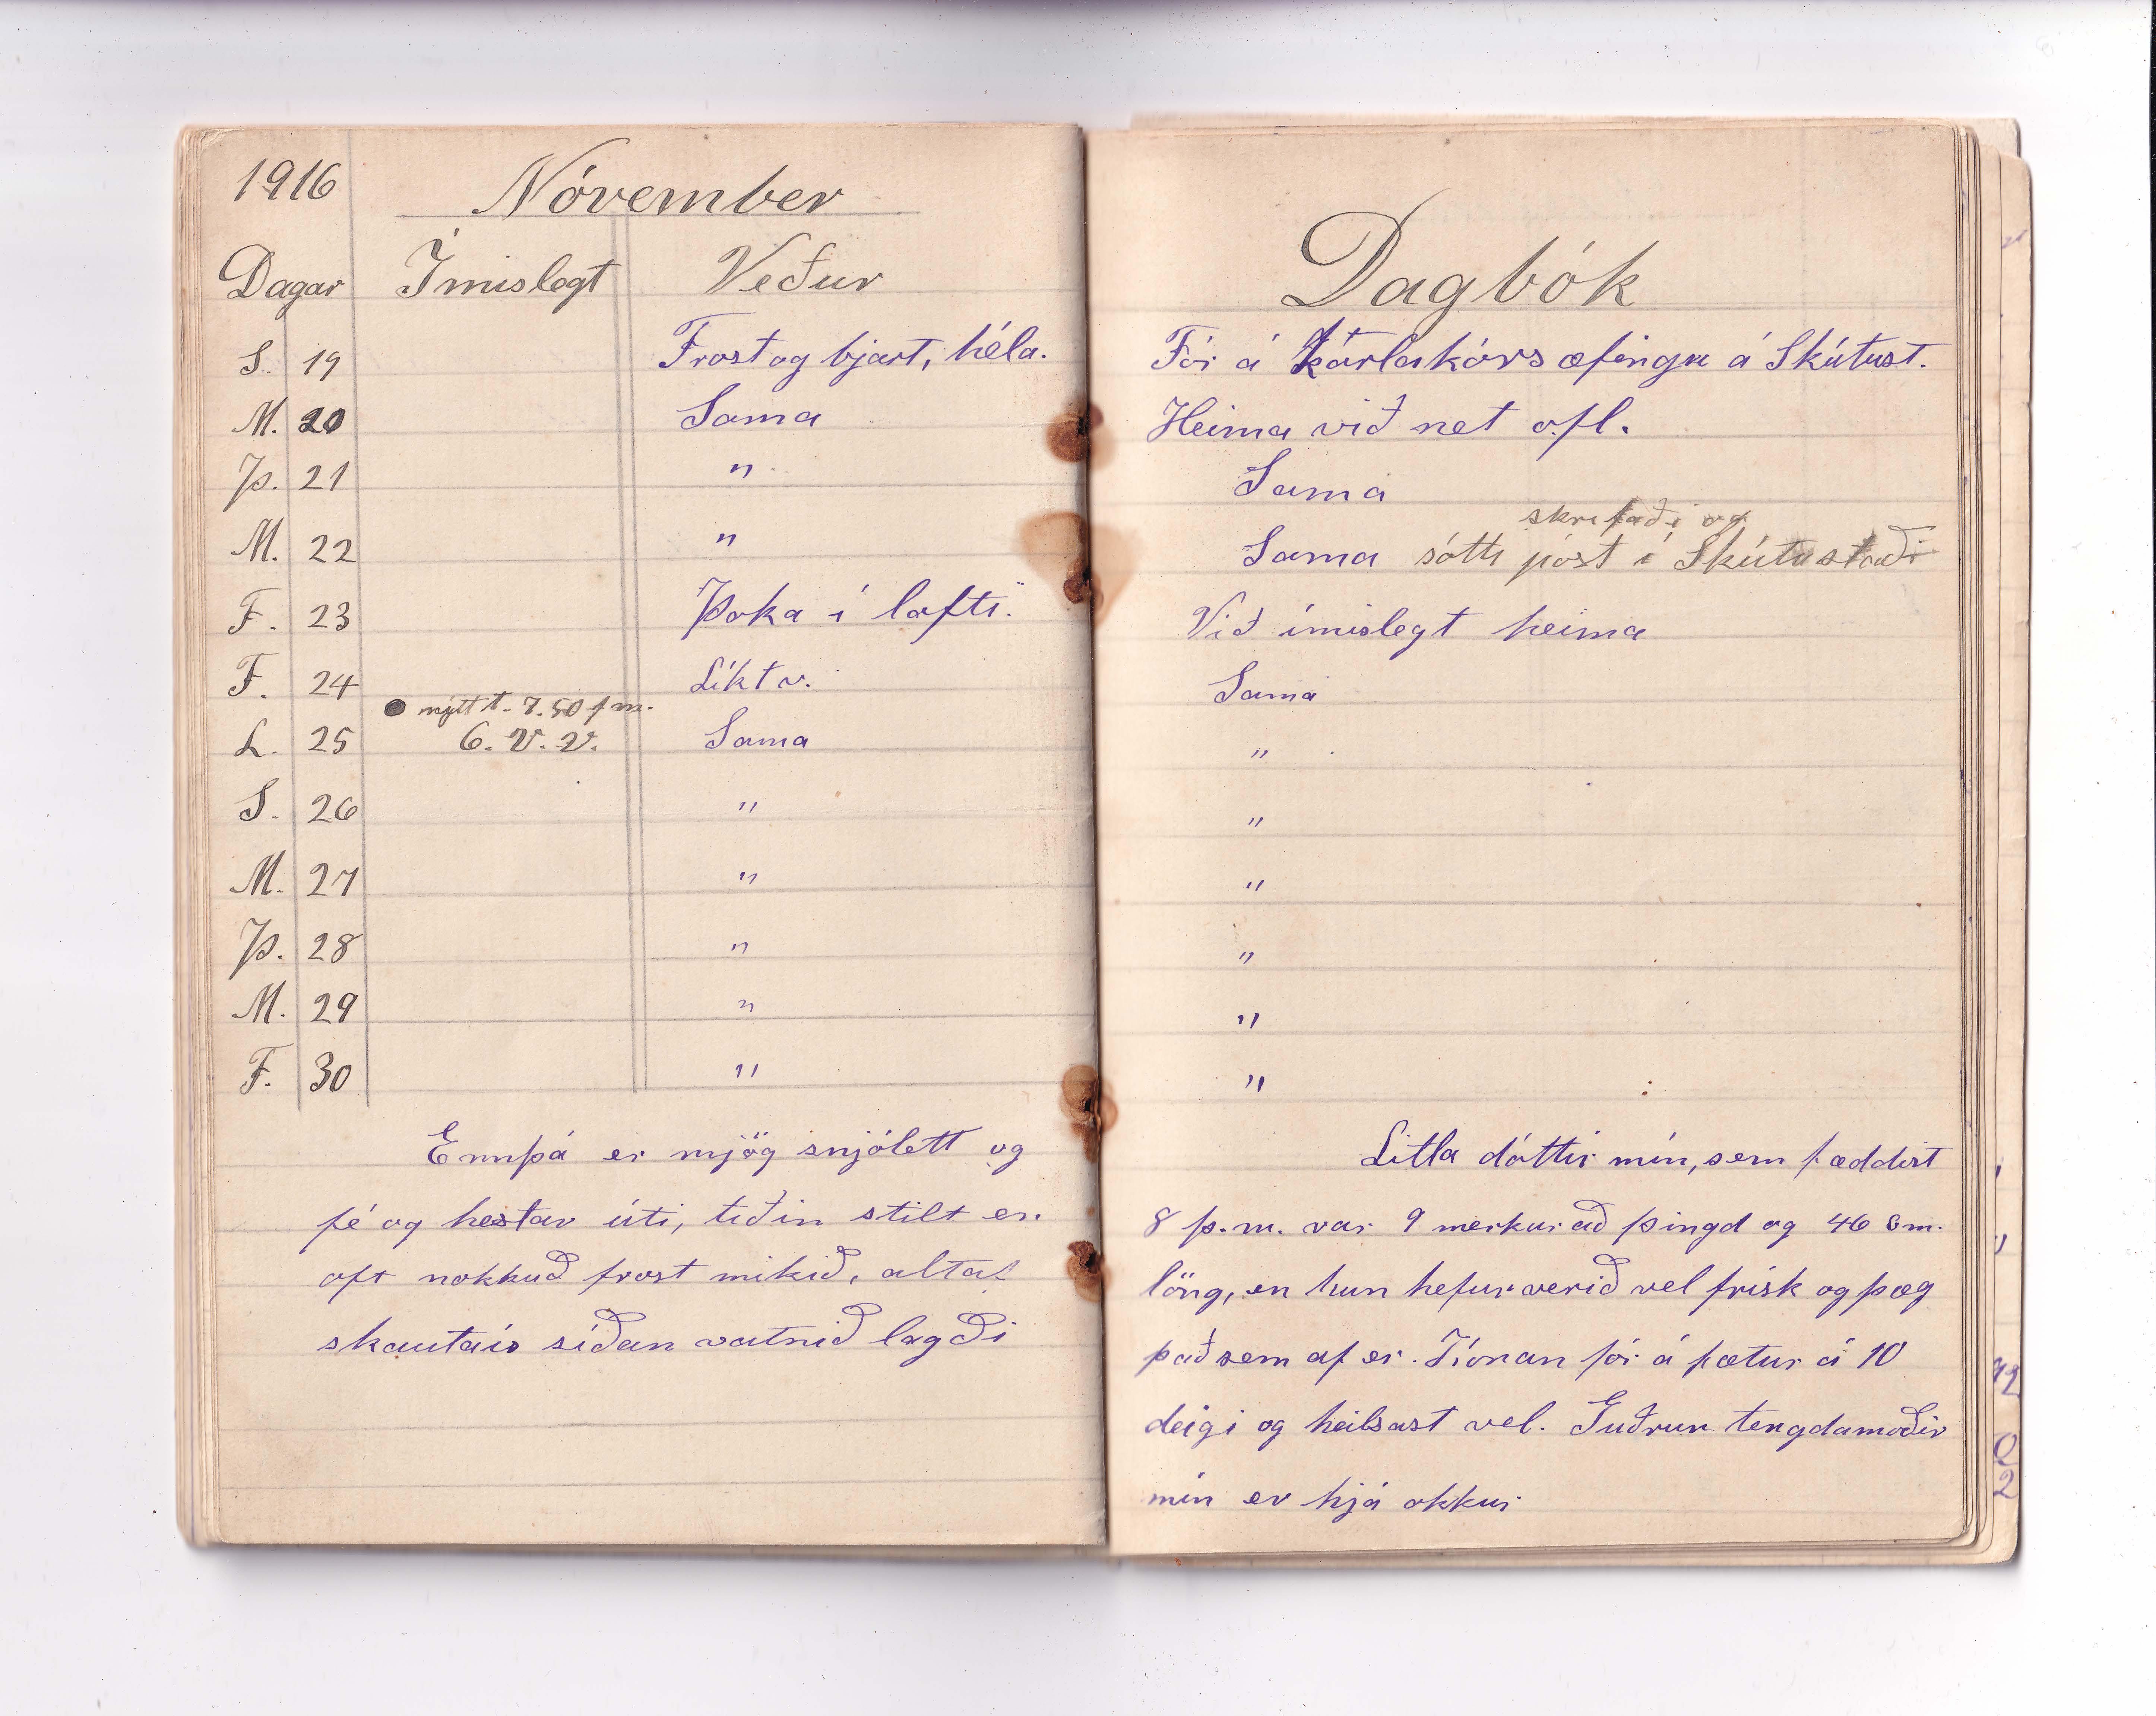 1916 Nóvember
Dagar Ímislegt Veður
S. 19 Frost og bjart, héla.
M. 20 Sama
Þ. 21 "
M. 22 "
F. 23 Þoka í lofti.
F. 24 Líkt v.
● nýtt t. 7.50 f.m.
L. 25 6. V. V. Sama
S. 26 "
M. 27 "
Þ. 28 "
M. 29 "
F. 30 "
Ennþá er mjög snjólett og
fé og hestar úti, tíðin stilt en
oft nokkuð frost mikið, altaf
skautaís síðan vatnið lagði
Dagbók
Fór á karlakórs æfingu á Skútust.
Heima við net ofl.
Sama
skrifaði og
Sama sótti póst í Skútustaði
Við ímislegt heima
Sama
"
"
"
"
"
"
Litla dóttir mín, sem fæddist
8 þ.m. var 9 merkur að þingd og 46 cm.
löng, en hun hefur verið vel frísk og þæg
það sem af er. Konan fór á fætur á 10
deigi og heilsast vel. Guðrun tengdamoðir
mín er hjá okkur